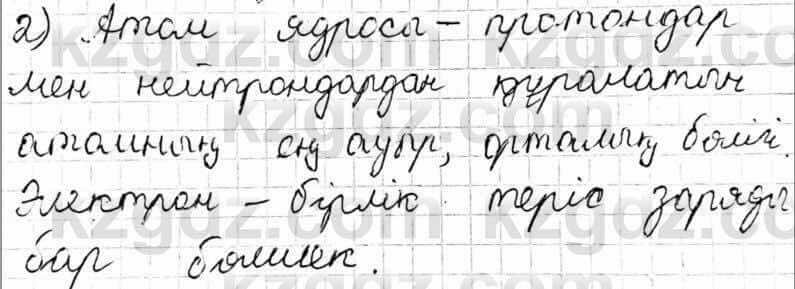 2) Атом ядросы – протондар
мен нейтрондардан құралатын
атомның ең ауыр, орталық бөлігі.
Электрон – бірлік теріс заряды
бар бөлшек.